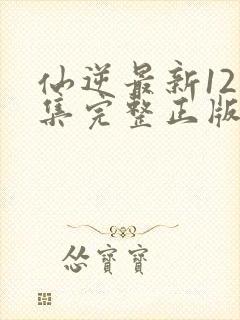 仙逆最新12
集完整正版
怂寶寶